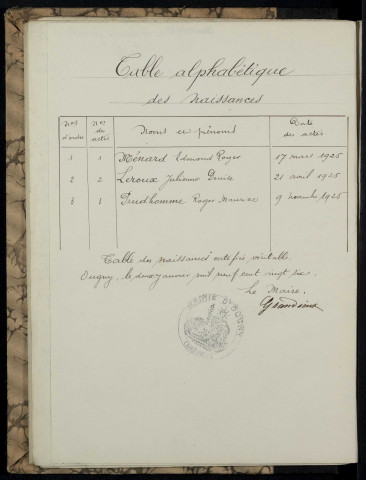 Table alphabétique
des Naissances
Nos d'ordre Nos des actes Noms et prénoms Date des actes
1 1 Ménard Edmond Roger 17 mars 1925
2 2 Leroux Julienne Denise 21 avril 1925
3 Prudhomme Roger Maurice 9 novembre 1925
Table des naissances certifiée véritable.
Ougny, le deux janvier mil neuf cent vingt six.
Le Maire,
MAIRIE D'OUGNY